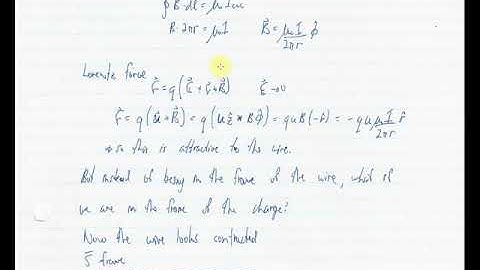 ∮ B·dl = μ₀ I enc
B·2πr = μ₀I    B⃗ = μ₀I/2πr φ̂
Lorentz force
F⃗ = q(E⃗ + v⃗ × B⃗)    E⃗ → 0
F⃗ = q(u⃗ × B⃗) = q(u ẑ × B φ̂) = q u B(-r̂) = -q u μ₀I/2πr r̂
so this is attractive to the wire.
But instead of being in the frame of the wire, what if
we are in the frame of the charge?
Now the wire looks contracted
frame